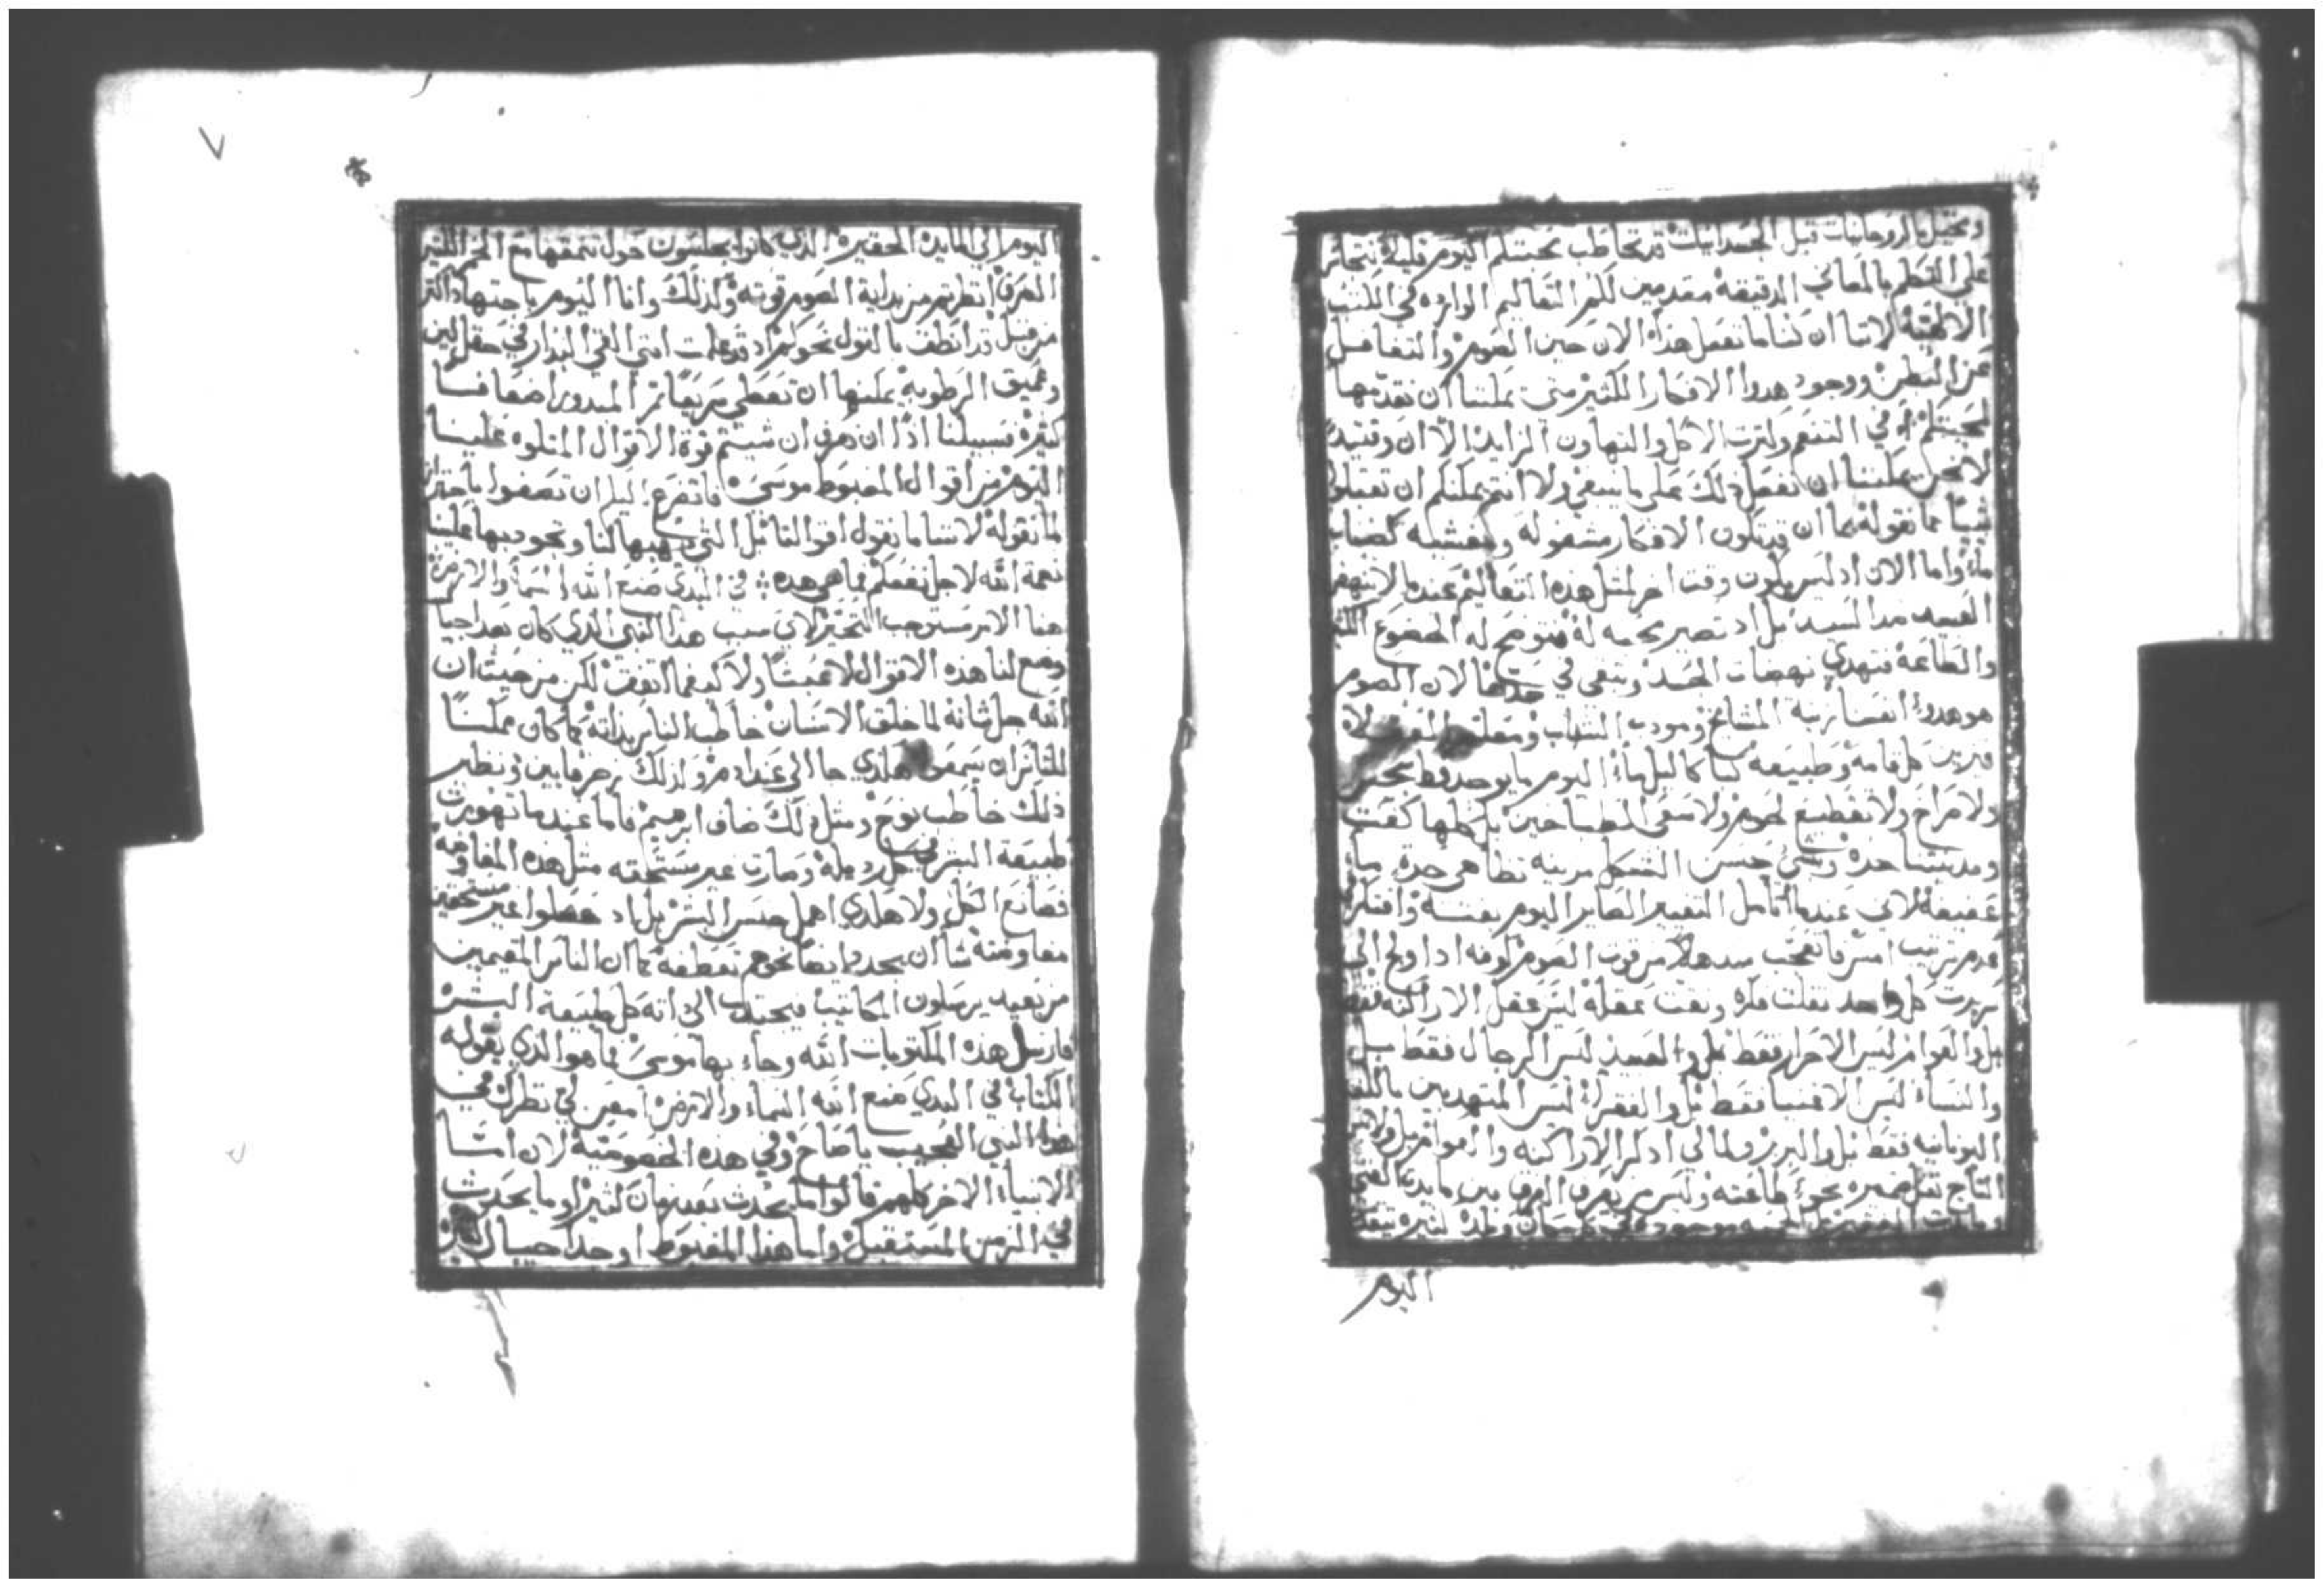 وتحتيل بالروحانيات قبل الجسدانيات قد تخاطب محبتكم اليوم قليلا نتجاسر
على التكلم بالمعاني الدقيقة مقدمين لكم التعاليم الوارده في الكتب
الالهية لاننا ان كنا ما نفعل هذا الان حين الصوم والتغافل
عن البطن ووجود هدوا الافكار الكثير متى يمكننا ان نقدمها
لمحبتكم أفي التنعم ولترت الاكل والتهاون الزايد الا ان وقتيد
لا نحن يمكننا ان نفعل ذلك على ما ينبغي ولا انتم يمكنكم ان تقبلوا
شيئا مما نقوله بما ان تكون الافكار مشغوله ومغشيه كضباب
ما واما الان اد ليس يكون وقت اخر لمثل هذه التعاليم عندما لا تنهض
العبيد ضد السيد بل اد تصير له الخضوع الكثير
والطاعة فتهدي نهضات الجسد وتبقى في حدها لان الصوم
هو هدوء انفسنا زينة المشايخ ومودب الشباب ومعلم
كل قامه وطبيعه كما اليوم ما يوجد قط
ولا صراخ ولا تقطيع لحوم ولا سعي الطباخين بل كلها كفت
ومدينتنا حسن الشكل مزينه
عفيفة لاني عندما اتامل التغيير الصاير اليوم بغتة وافتكر
عدم ترتيب امس فاتعجب من قوت الصوم كونه اد اولج الى
كل واحد نقلت فكره ونقت عقله ليس عقل الاراكنه فقط
بل والعوام ليس الاحرار فقط بل والعبيد ليس الرجال فقط بل
والنساء ليس الاغنيا فقط بل والفقراء ليس المتهدبين باللغه
اليونانيه فقط بل والبربر ومالي ادكر الاراكنه والعوام بل ولابس
التاج ضميره نحو طاعته وليس من يعرف الفرق بين مايدة الغني
ومايدة الفقير بل موجوده في كل مكان
اليوم
اليوم الى المايده الحقيره الدين كانوا يجلسون حول تنمقها مع الخمر الكثير
الصرف انظرتم من بداية الصوم قوته ولذلك وانا اليوم باجتهاد اكثر
من قبل قد انطف بالقول نحوكم اد قد علمت انني القي البدار في حقل لين
وعميق الرطوبة يمكنها ان تعطي سريعا ثمر المبدور اضعافا
كثيرة فسبيلنا ادا ان نعرف ان شيتم قوة الاقوال المتلوه علينا
اليوم من اقوال المغبوط موسى فاتضرع اليكم ان تصغوا باحتراز
لما نقوله لاننا ما نقول اقوالنا بل التي تهبها لنا وتجود بها علينا
نعمة الله لاجل نفعكم فما هي هده في البدي صنع الله السما والارض
هنا الامر مستوجب التحير لاي سبب هدا النبي الدي كان بعد اجيال
وضع لنا هذه الاقوال لا عبثا ولا كيفما اتفق لكن من حيث ان
الله جل شانه لما خلق الانسان خاطب الناس بداته كما كان ممكنا
للناس ان يسمعوا هكدي جا الى عند ادم ولذلك زجر قايين ونظير
ذلك خاطب نوح ومثل ذلك ضاف ابرهيم فاما عندما تهورت
طبيعة البشر في كل رديلة وصارت غير مستحقه مثل هذه المفاوضه
فصانع الكل ولا هكدي اهمل جنس البشر بل اد حصلوا غير مستحقين
مفاوضته شا ان يجدد ايضا نحوهم تعطفه كما ان الناس المقيمين
من بعيد يرسلون المكاتيب فيجتدب الى داته كل طبيعة البشر
فارسل هذه المكتوبات الله وجاء بها موسى فما هو الدي يقوله
الكتاب في البدي صنع الله السماء والارض امعن لي نظرك في
هدا النبي العجيب يا صاح وفي هذه الخصوصية لان
الانبياء الاخر كلهم قالوا ما يحدث بعد زمان كثير او ما يحدث
في الزمن المستقبل واما هذا المغبوط اوجد